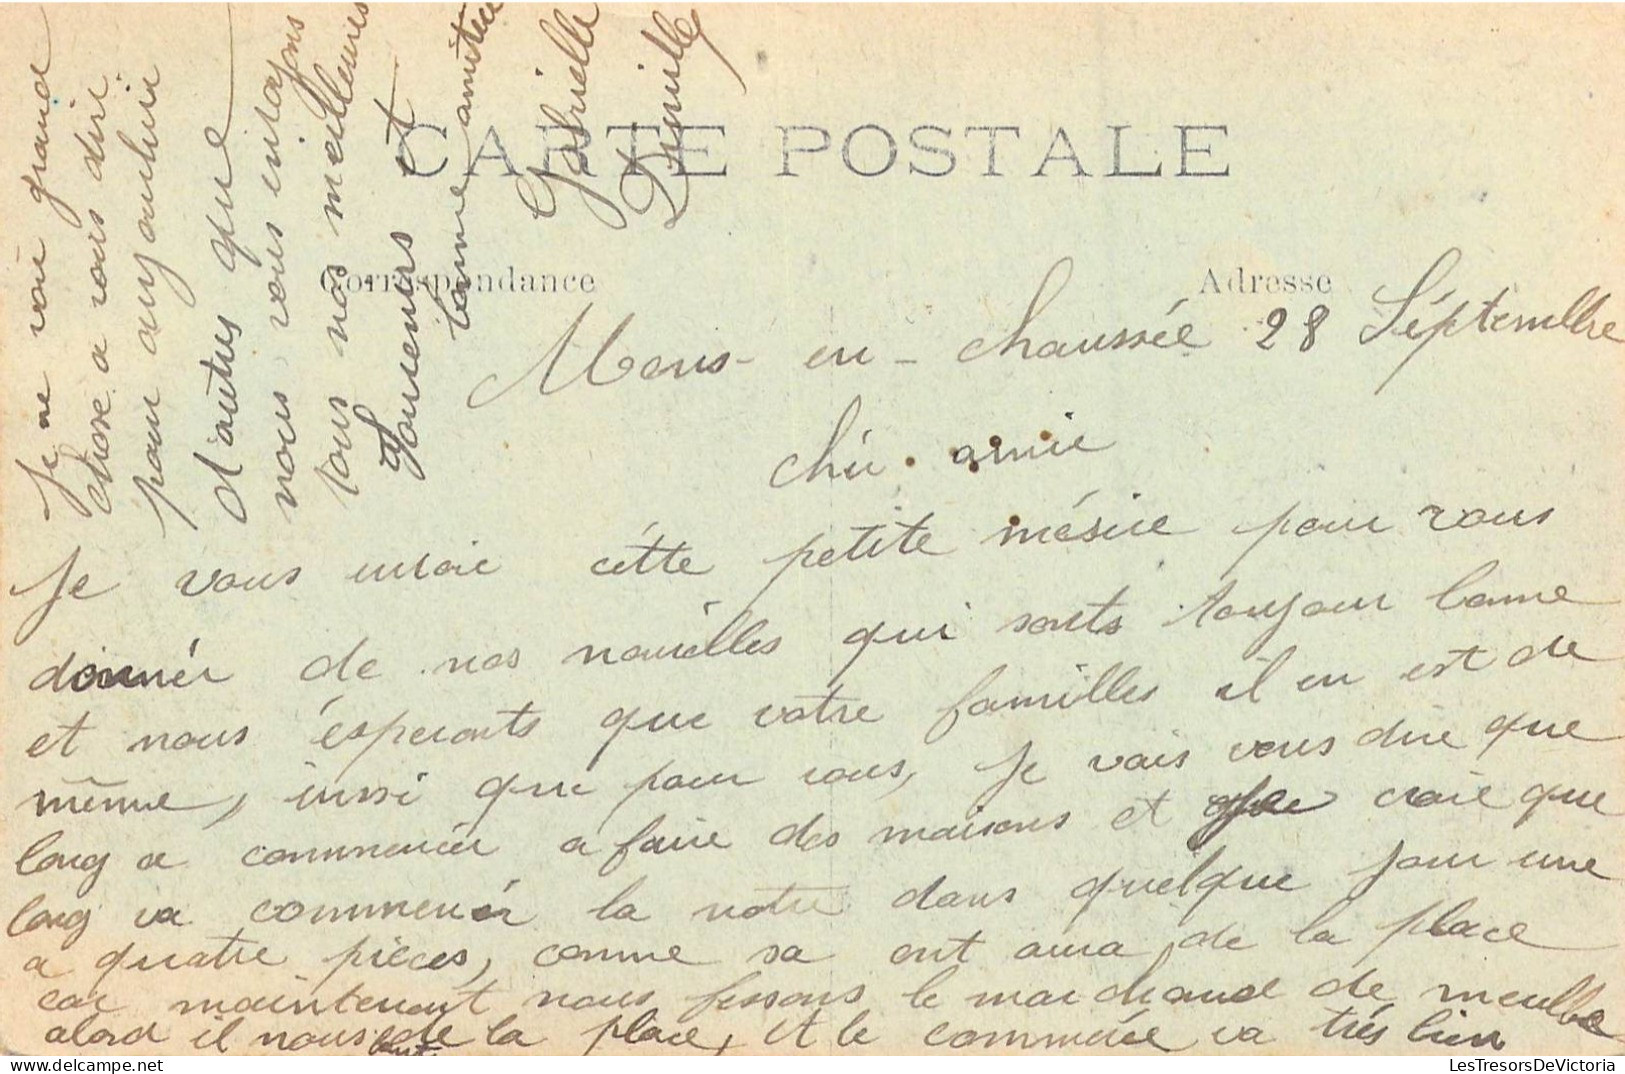 CARTE POSTALE
Correspondance
Adresse
Mons-en-chaussée 28 Séptembre
chér amie
Je vous envoie cétte petite mésive pour vous
donnér de nos nouvélles qui sonts toujour bonne
et nous ésperonts que votre familles il en est de
même, insi que pour vous, Je vais vous dire que
long a commencér a faire des maisons et croie que
long va commencér la notre dans quélque jour une
a quatre pièces, comme sa ont aura de la place
car maintenant nous fessons le marchand de meuble
alord il nous faut de la place, et le commérce va trés bien
Je ne voie grand
chose a vous dire
pour aujourhuie
d'autres que
nous vous envoyons
tous nos meilleures
souvenirs et
bonne amitiee
Gabrielle